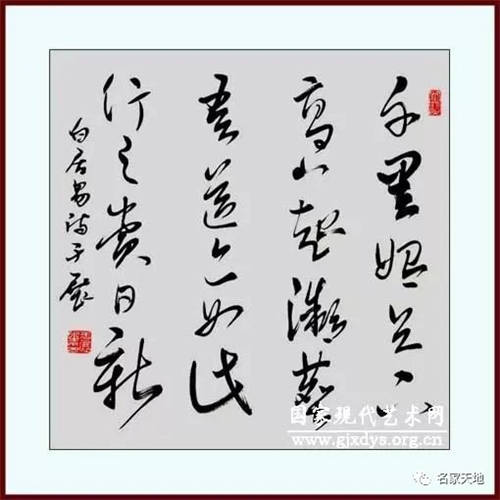 千里始足下
高山起微塵
吾道亦如此
行之貴日新
白居易诗子
国家现代艺术网
www.gjxdys.org.cn
名家天地